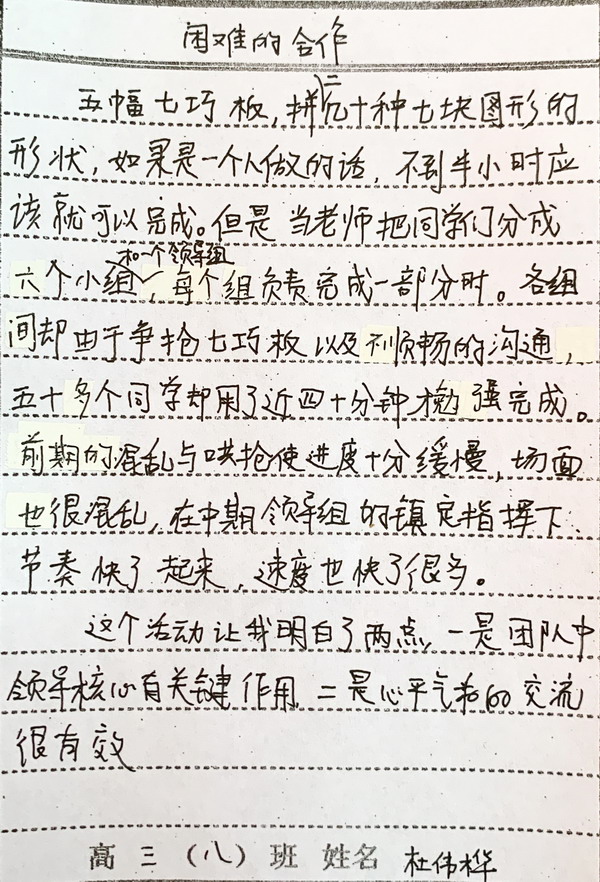 困难的合作
五幅七巧板,拼二几十种七块图形的
形状,如果是一个人做的话,不到半小时应
该就可以完成。但是当老师把同学们分成
和一个领导组
六个小组,每个组负责完成一部分时。各组
间却由于争抢七巧板以及不顺畅的沟通,
五十多个同学却用了近四十分钟勉强完成。
前期的混乱与哄抢使进度十分缓慢,场面
也很混乱,在中期领导组的镇定指挥下,
节奏快了起来,速度也快了很多。
这个活动让我明白了两点,一是团队中
领导核心有关键作用,二是心平气和的交流
很有效
高三(八)班 姓名 杜伟桦